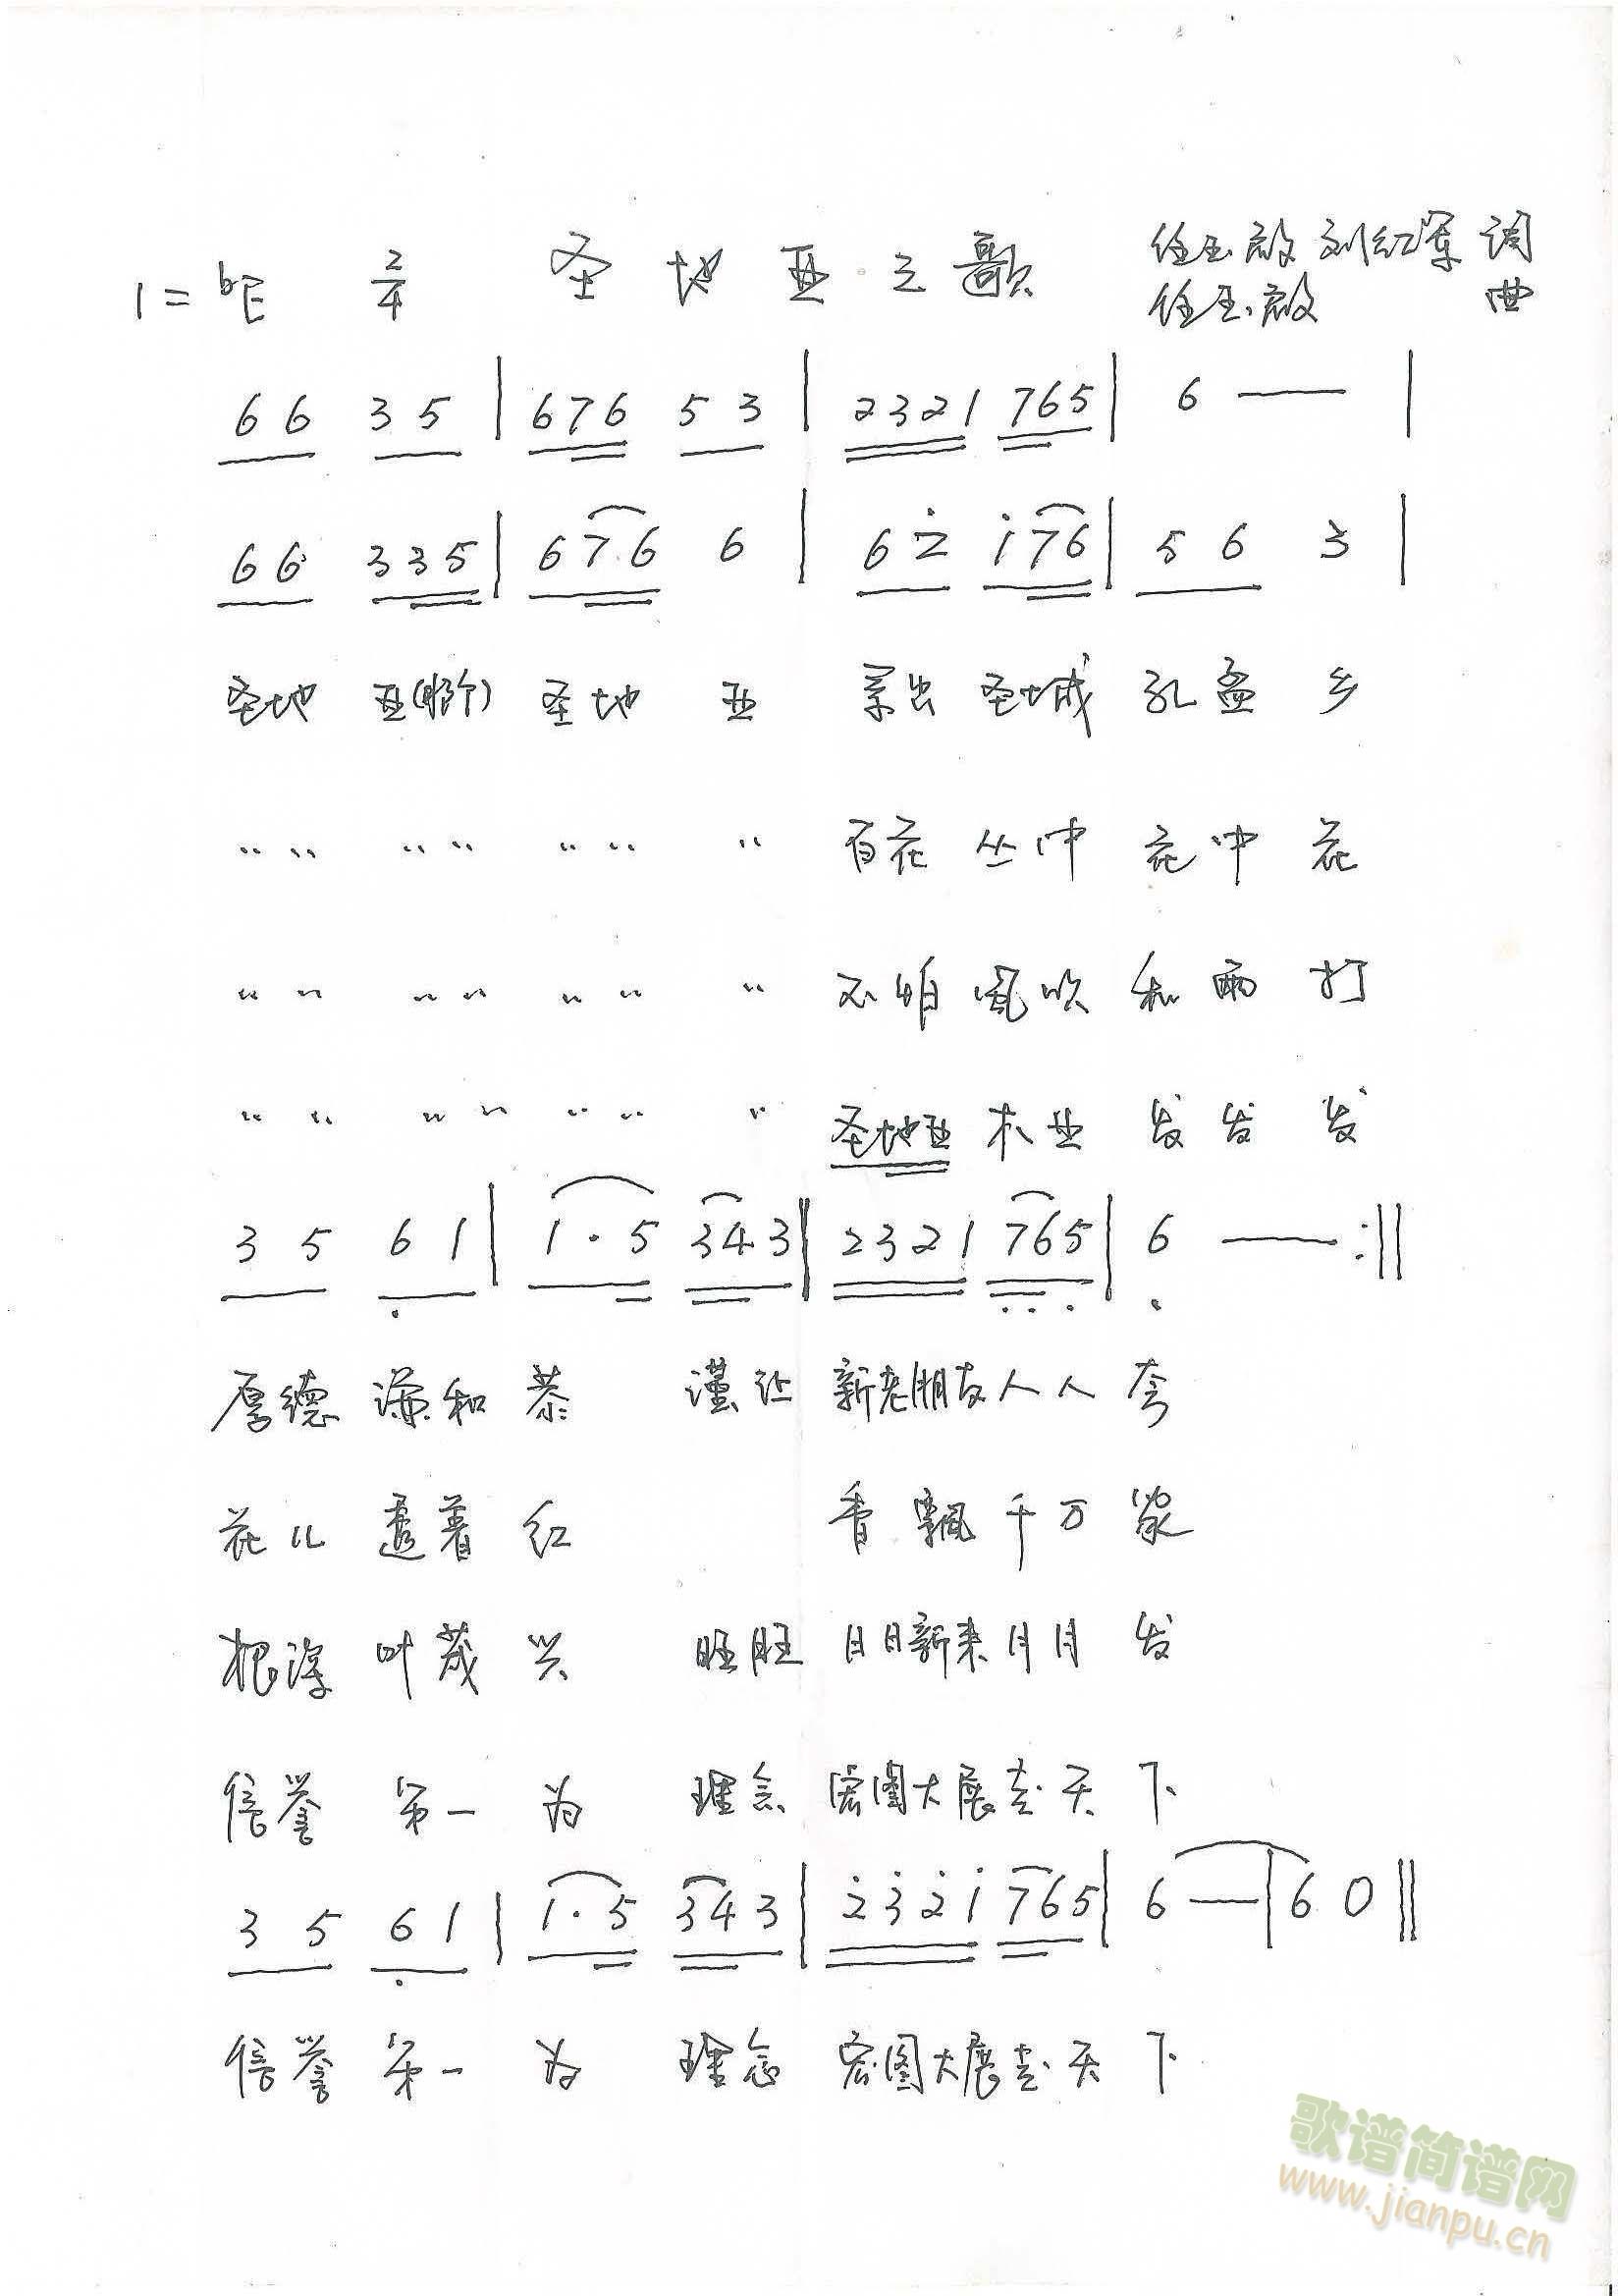 1=ᵇE 2/4 圣地亚之歌 任玉启 刘红军 词
任玉启 曲
66 35 | 676 53 | 2321 765 | 6 — |
66 335 | 676 6 | 6 2̇ 1̇76 | 56 3 |
圣地 亚(那个) 圣地 亚 来出 圣城 孔孟 乡
〃〃 〃〃 〃〃 〃 百花 丛中 花中 花
〃〃 〃〃 〃〃 〃 不怕 风吹 和雨 打
〃〃 〃〃 〃〃 〃 圣地亚 木业 发发 发
35 6̣1 | 1·5 343 | 2321 7̣6̣5̣ | 6̣ — :||
厚德 谦和 恭 谨让 新老朋友人人 夸
花儿 透着 红 香飘 千万 家
根深 叶茂 兴 旺旺 日日新来月月 发
信誉 第一 为 理念 宏图大展走天 下
35 6̣1 | 1·5 343 | 2̇3̇2̇1̇ 765 | 6 — | 6 0 ||
信誉 第一 为 理念 宏图大展走天 下
歌谱简谱网
www.jianpu.cn